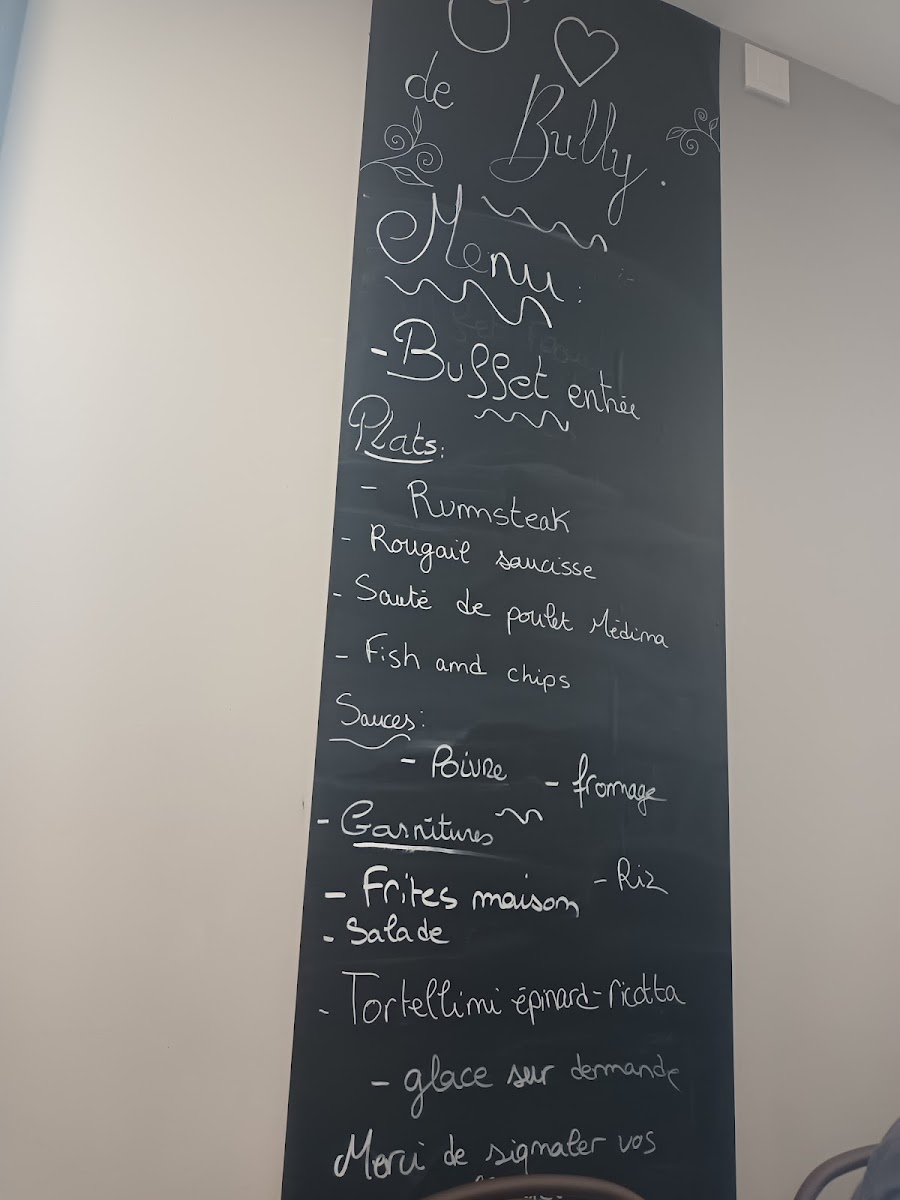 O'
de Bully.
Menu:
- Buffet entrée
Plats:
- Rumsteak
- Rougail saucisse
- Sauté de poulet Médina
- Fish and chips
Sauces:
- Poivre - fromage
- Garnitures
- Frites maison - Riz
- Salade
- Tortellini épinard-ricotta
- glace sur demande
Merci de signaler vos